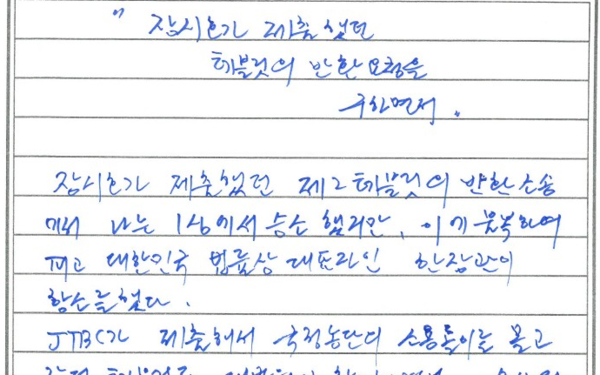 " 장시호가 제출했던
태블릿의 반환 요청을
구하면서.
장시호가 제출했던 제2태블릿의 반환소송
에서 나는 1심에서 승소 했지만, 이에 불복하여
피고 대한민국 법률상 대표자인 한장관이
항소를 했다.
JTBC가 제출해서 국정농단의 소용돌이를 몰고